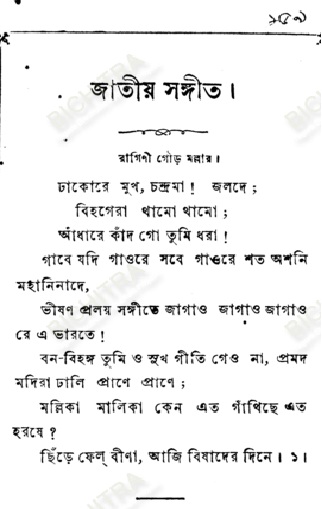 ১৫৯
জাতীয় সঙ্গীত।
রাগিণী গৌড় মল্লার।
ঢাকোরে মুখ, চন্দ্রমা! জলদে;
বিহগেরা থামো থামো;
আঁধারে কাঁদ গো তুমি ধরা!
গাবে যদি গাওরে সবে গাওরে শত অশনি
মহানিনাদে,
ভীষণ প্রলয় সঙ্গীতে জাগাও জাগাও জাগাও
রে এ ভারতে!
বন-বিহঙ্গ তুমি ও সুখ গীতি গেও না, প্রমদ
মদিরা ঢালি প্রাণে প্রাণে;
মল্লিকা মালিকা কেন এত গাঁথিছে এত
হরষে?
ছিঁড়ে ফেল্ বীণা, আজি বিষাদের দিনে। ১।